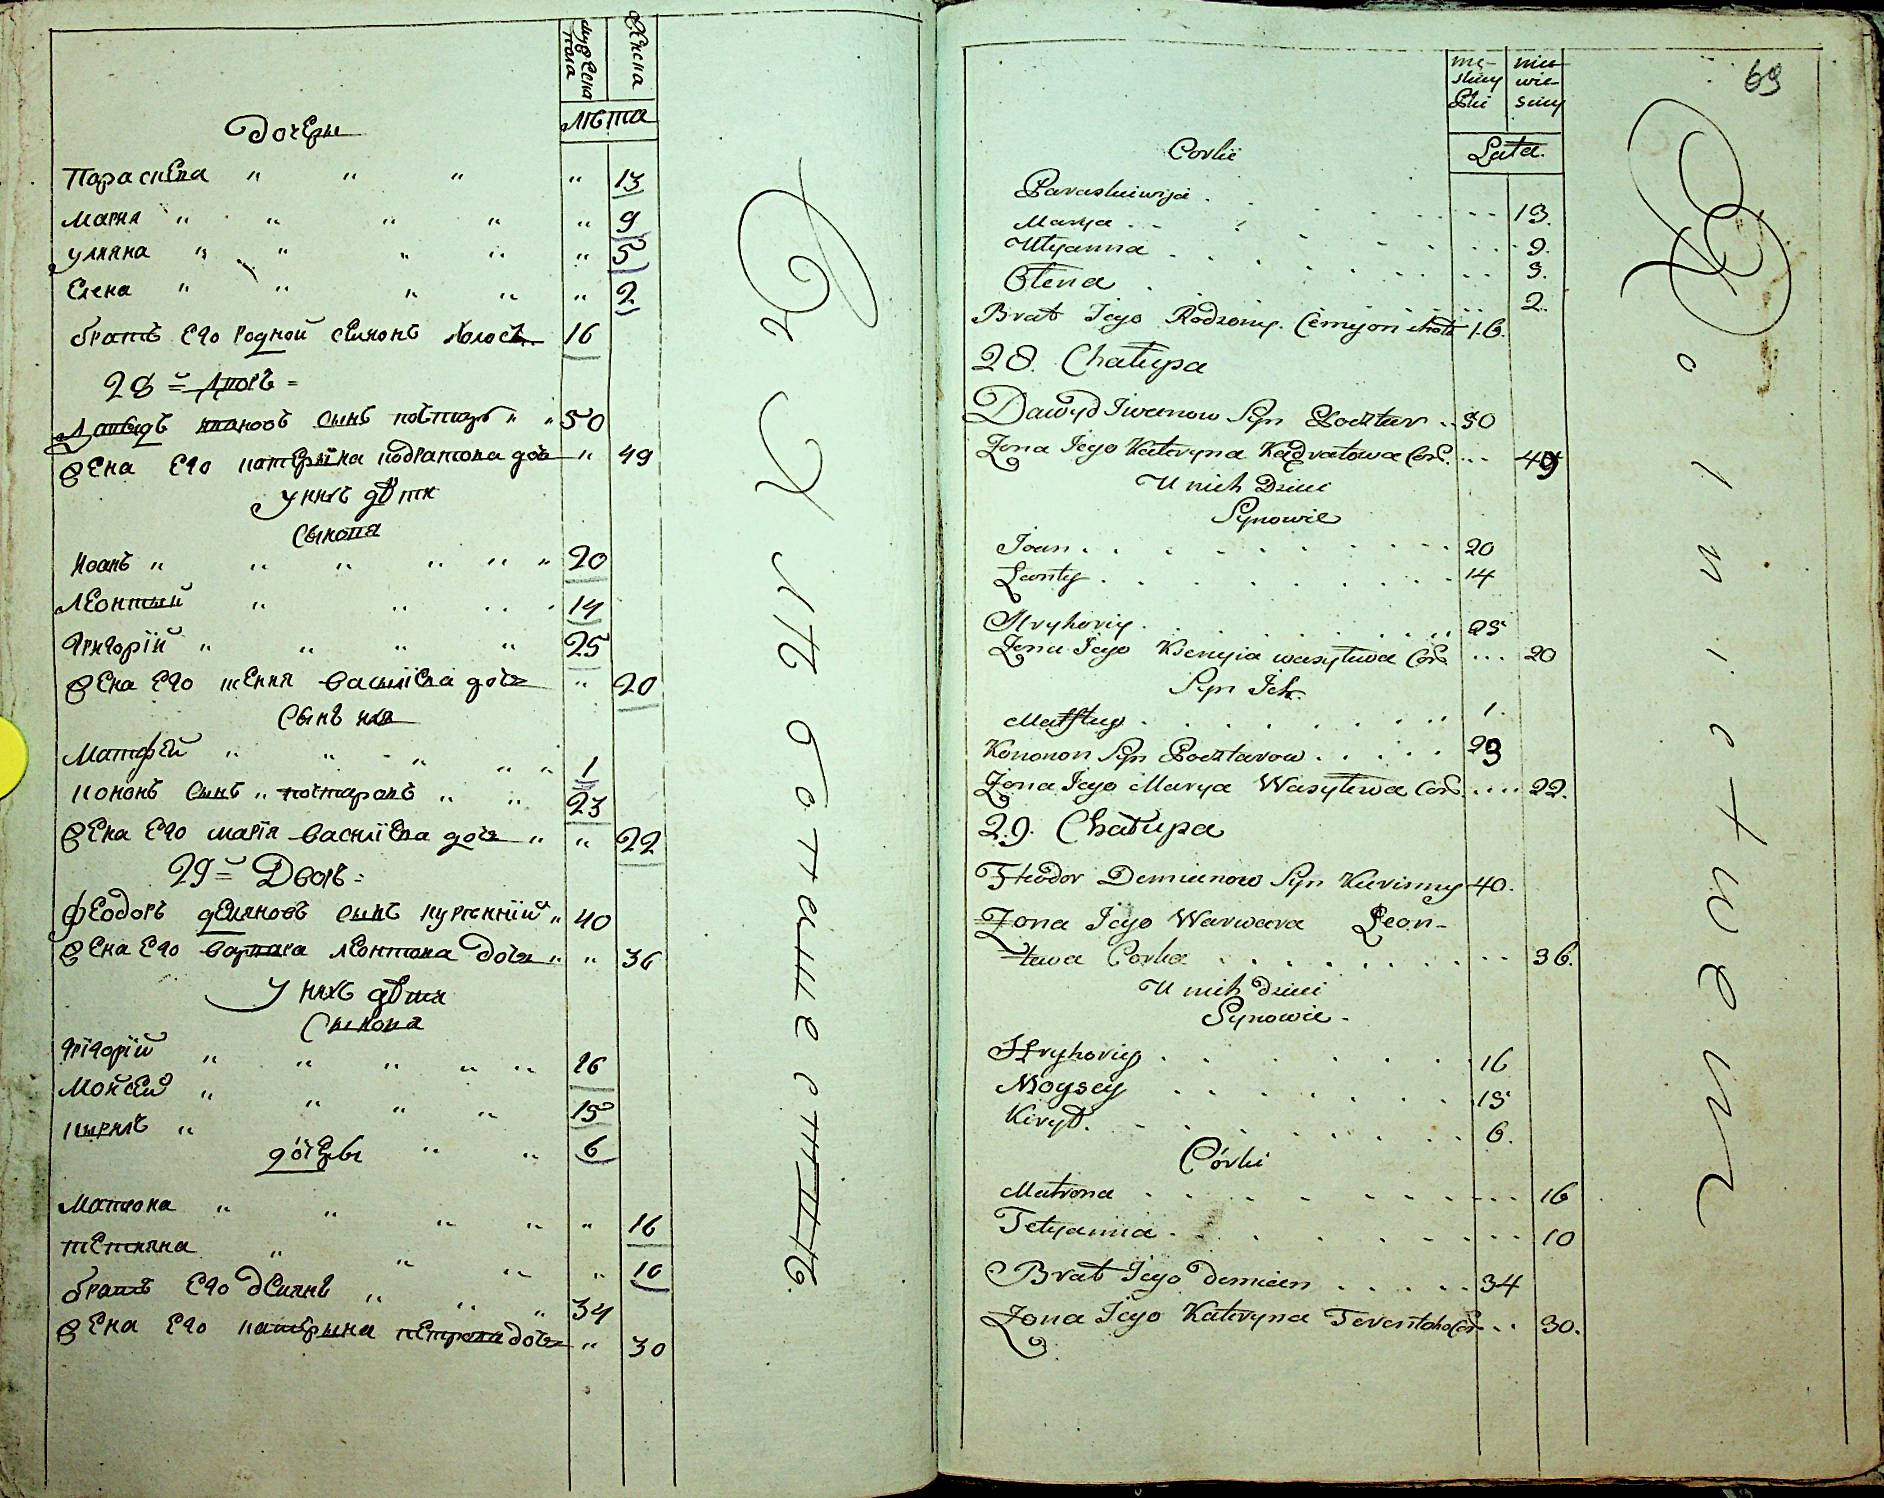 мужеска пола
женска
лѣта
дочери
Параскева " " " " 13
Мария " " " " " 9
Улияна " " " " " 5
Елена " " " " " 2
братъ его родной Симонъ 16
28й дворъ
Давидъ Ивановъ сынъ " " 50
жена его Катерина Кодратова дочь " 49
у нихъ дѣти
сынова
Иоанъ " " " " " " 20
Леонтый " " " " 14
Григорїй " " " " 25
жена его Ксения Василїева дочь " 20
сынъ ихъ
Матфей " " " " " 1
Кононъ сынъ " Почтаровъ " " 23
жена его Марїя Василїева дочь " " 22
29й Дворъ
Феодоръ Демяновъ сынъ Куринний " 40
жена его Варвара Леонтова дочь " " 36
у нихъ дѣти
сынова
Григорїй " " " " " 16
Мойсей " " " " 15
Кырилъ " " " 6
дочеры
Матрона " " " " " 16
Тетяна " " " " 10
братъ его Демянъ " " " 34
жена его Катерына Петрова дочь " 30
69
męskiey płci
niewiesciey
Lata.
Corki
Paraskiewija 13.
Marya 9.
Ulyanna 5.
Olena 2.
Brat Jego Rodzony. Semyon 16.
28. Chałupa
Dawyd Iwanow Syn Pocztar 50
Zona Jego Kateryna Kadratowa Cor. 49
U nich Dzieci
Synowie
Joan 20
Leonty 14
Hryhoriy 25
Zona Jego Ksenyia Wasylewa Cor. 20
Syn Ich
Matftey 1.
Kononon Syn Pocztarow 23
Zona Jego Marya Wasylewa Cor. 22.
29. Chałupa
Fheodor Demianow Syn Kurinny 40.
Zona Jego Warwara Leon-
tewa Corka 36.
U nich dzieci
Synowie -
Hryhoriy 16
Moysey 15
Kirył. 6.
Córki
Matrona 16
Tetyanna 10
Brat Jego Demian 34
Zona Jego Kateryna Terentoho Cor. 30.